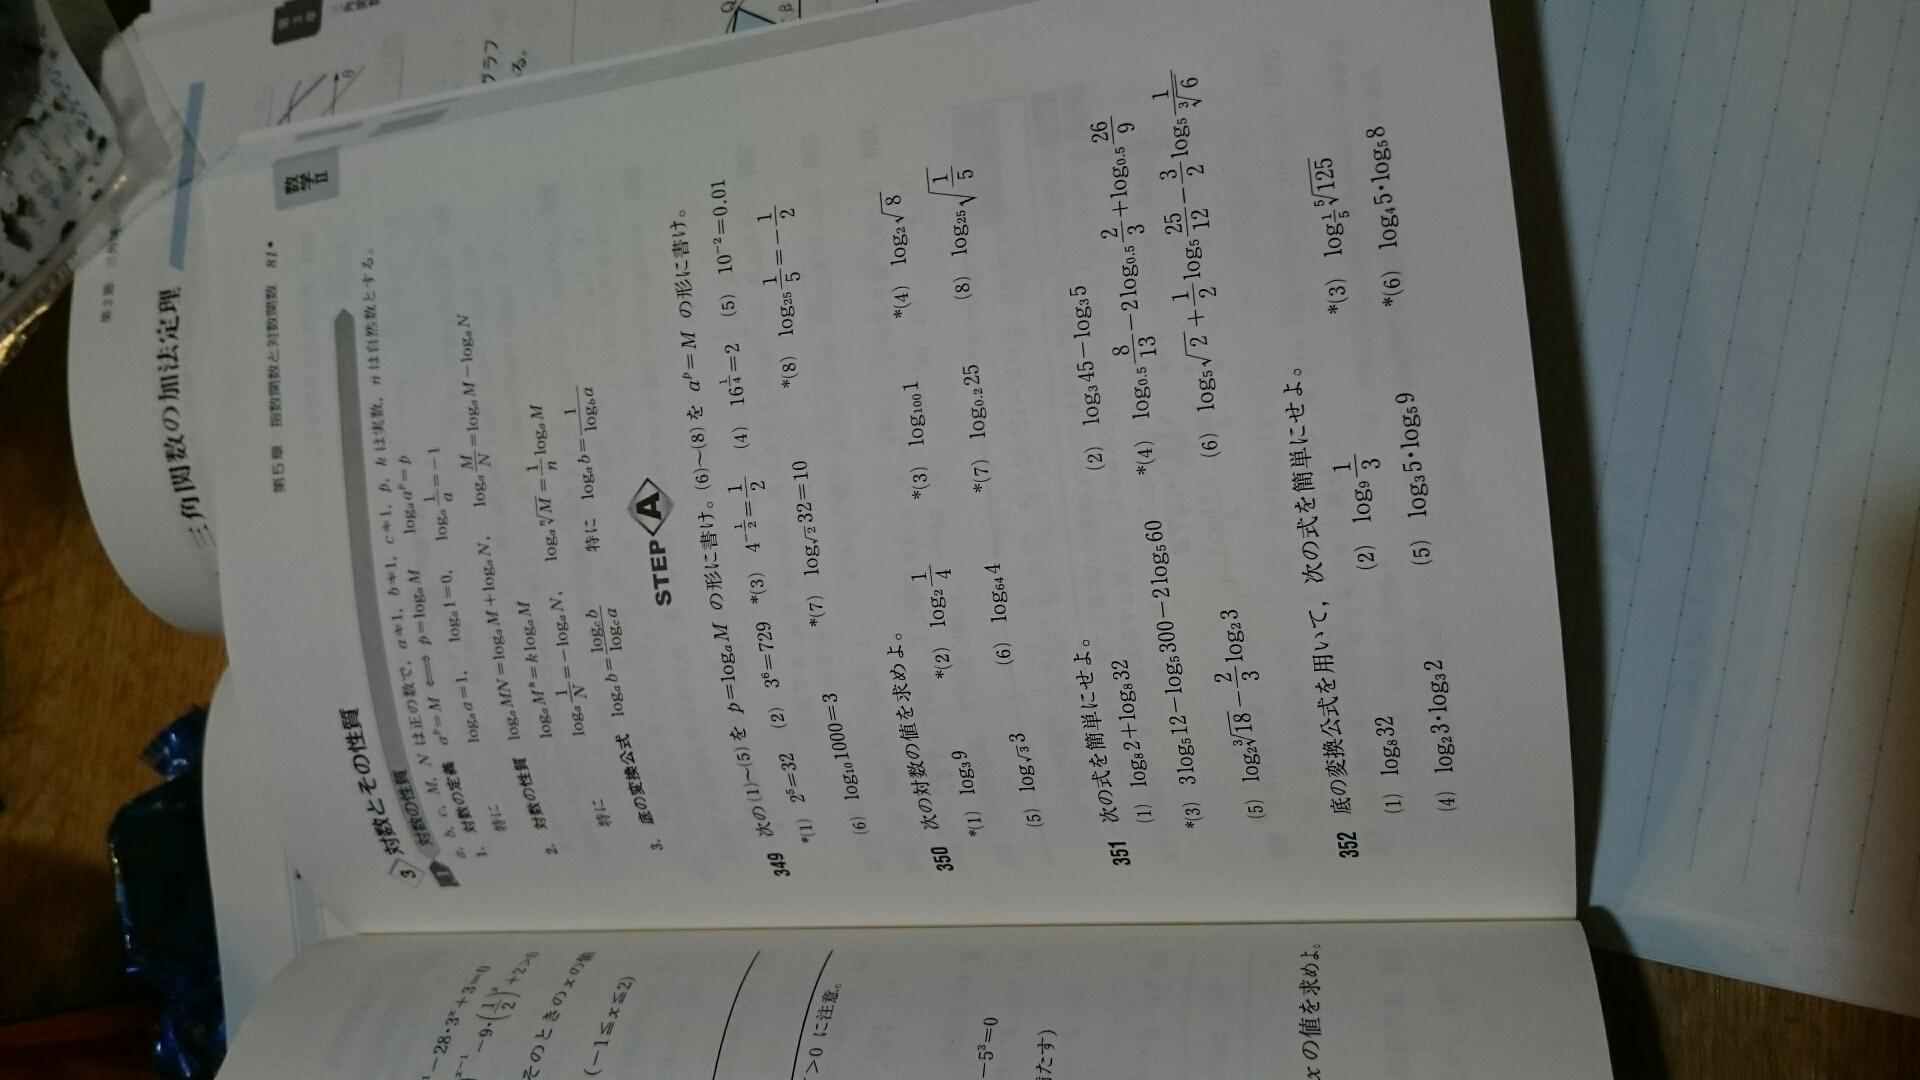 三角関数の加法定理
グラフ
る。
第5章 指数関数と対数関数 81
数学Ⅱ
3 対数とその性質
対数の性質
a, b, c, M, N は正の数で, a≠1, b≠1, c≠1, p, k は実数, n は自然数とする。
1. 対数の定義 a^p=M ⟺ p=log_a M log_a a^p=p
特に log_a a=1, log_a 1=0, log_a 1/a=-1
2. 対数の性質 log_a MN=log_a M+log_a N, log_a M/N=log_a M-log_a N
log_a M^k=k log_a M
特に log_a 1/N=-log_a N, log_a ⁿ√M=1/n log_a M
3. 底の変換公式 log_a b=log_c b/log_c a 特に log_a b=1/log_b a
STEP A
349 次の(1)~(5)を p=log_a M の形に書け。(6)~(8)を a^p=M の形に書け。
*(1) 2^5=32 (2) 3^6=729 *(3) 4^(-1/2)=1/2 (4) 16^(1/4)=2 (5) 10^(-2)=0.01
(6) log_10 1000=3 *(7) log_√2 32=10 *(8) log_25 1/5=-1/2
350 次の対数の値を求めよ。
*(1) log_3 9 *(2) log_2 1/4 *(3) log_100 1 *(4) log_2 √8
(5) log_√3 3 (6) log_64 4 *(7) log_0.2 25 (8) log_25 √(1/5)
351 次の式を簡単にせよ。
(1) log_8 2+log_8 32 (2) log_3 45-log_3 5
*(3) 3log_5 12-log_5 300-2log_5 60 *(4) log_0.5 8/13-2log_0.5 2/3+log_0.5 26/9
(5) log_2 ³√18-2/3 log_2 3 (6) log_5 √2+1/2 log_5 25/12-3/2 log_5 1/³√6
352 底の変換公式を用いて, 次の式を簡単にせよ。
(1) log_8 32 (2) log_9 1/3 *(3) log_(1/5) ⁵√125
(4) log_2 3・log_3 2 (5) log_3 5・log_5 9 *(6) log_4 5・log_5 8
-28・3^x+3=0
-9・(1/2)^x+2>0
そのときの x の値
(-1≦x≦2)
>0 に注意。
-5³=0
たす)
x の値を求めよ。